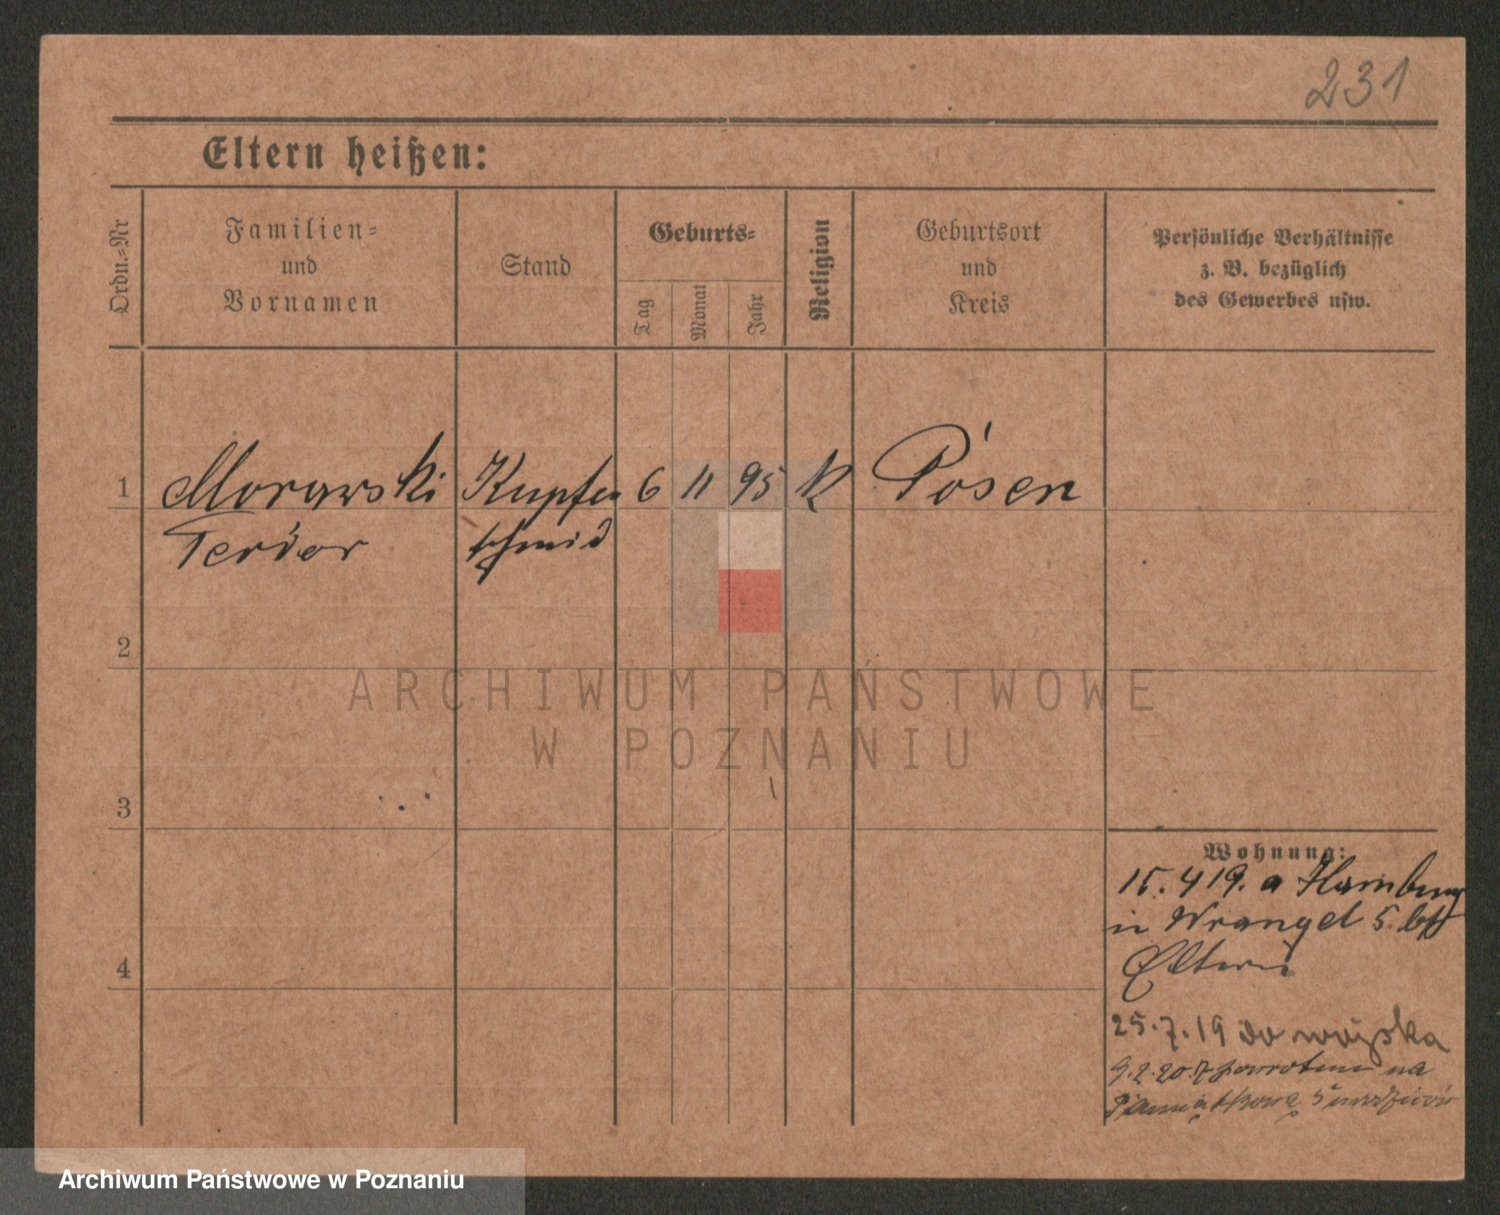 231
Eltern heißen:
Ordn.-Nr
Familien-
und
Vornamen
Stand
Geburts-
Tag
Monat
Jahr
Religion
Geburtsort
und
Kreis
Persönliche Verhältnisse
z. B. bezüglich
des Gewerbes usw.
1 Morawski Kupfer 6 11 95 K Posen
schmid
2
ARCHIWUM PAŃSTWOWE
W POZNANIU
3
Wohnung:
15. 4 19. a Hamburg
in Wrangel 5. bff
Eltern
4
25.7.19 do wojska
9.2.20 z powrotem na
Pamiątkową 5
Archiwum Państwowe w Poznaniu